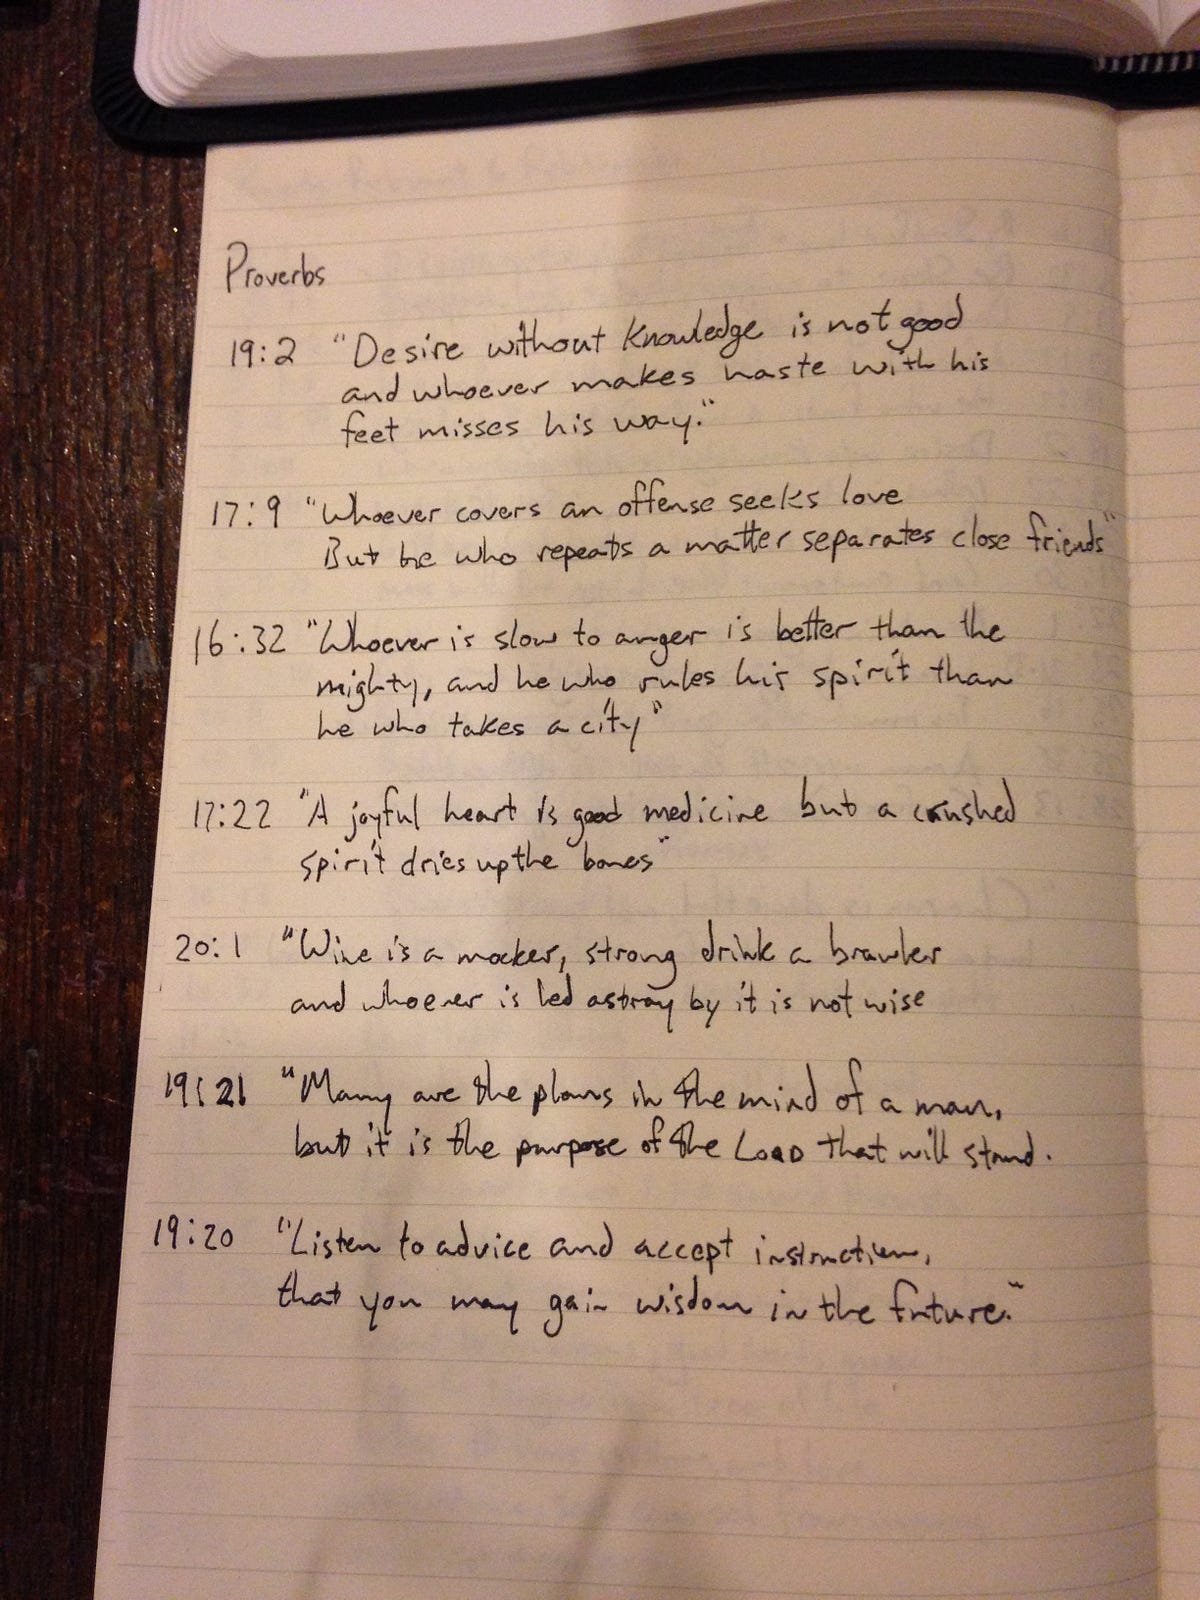 Proverbs
19:2 "Desire without knowledge is not good
and whoever makes haste with his
feet misses his way."
17:9 "Whoever covers an offense seeks love
But he who repeats a matter separates close friends"
16:32 "Whoever is slow to anger is better than the
mighty, and he who rules his spirit than
he who takes a city"
17:22 "A joyful heart is good medicine but a crushed
spirit dries up the bones"
20:1 "Wine is a mocker, strong drink a brawler
and whoever is led astray by it is not wise
19:21 "Many are the plans in the mind of a man,
but it is the purpose of the LORD that will stand.
19:20 "Listen to advice and accept instruction,
that you may gain wisdom in the future."